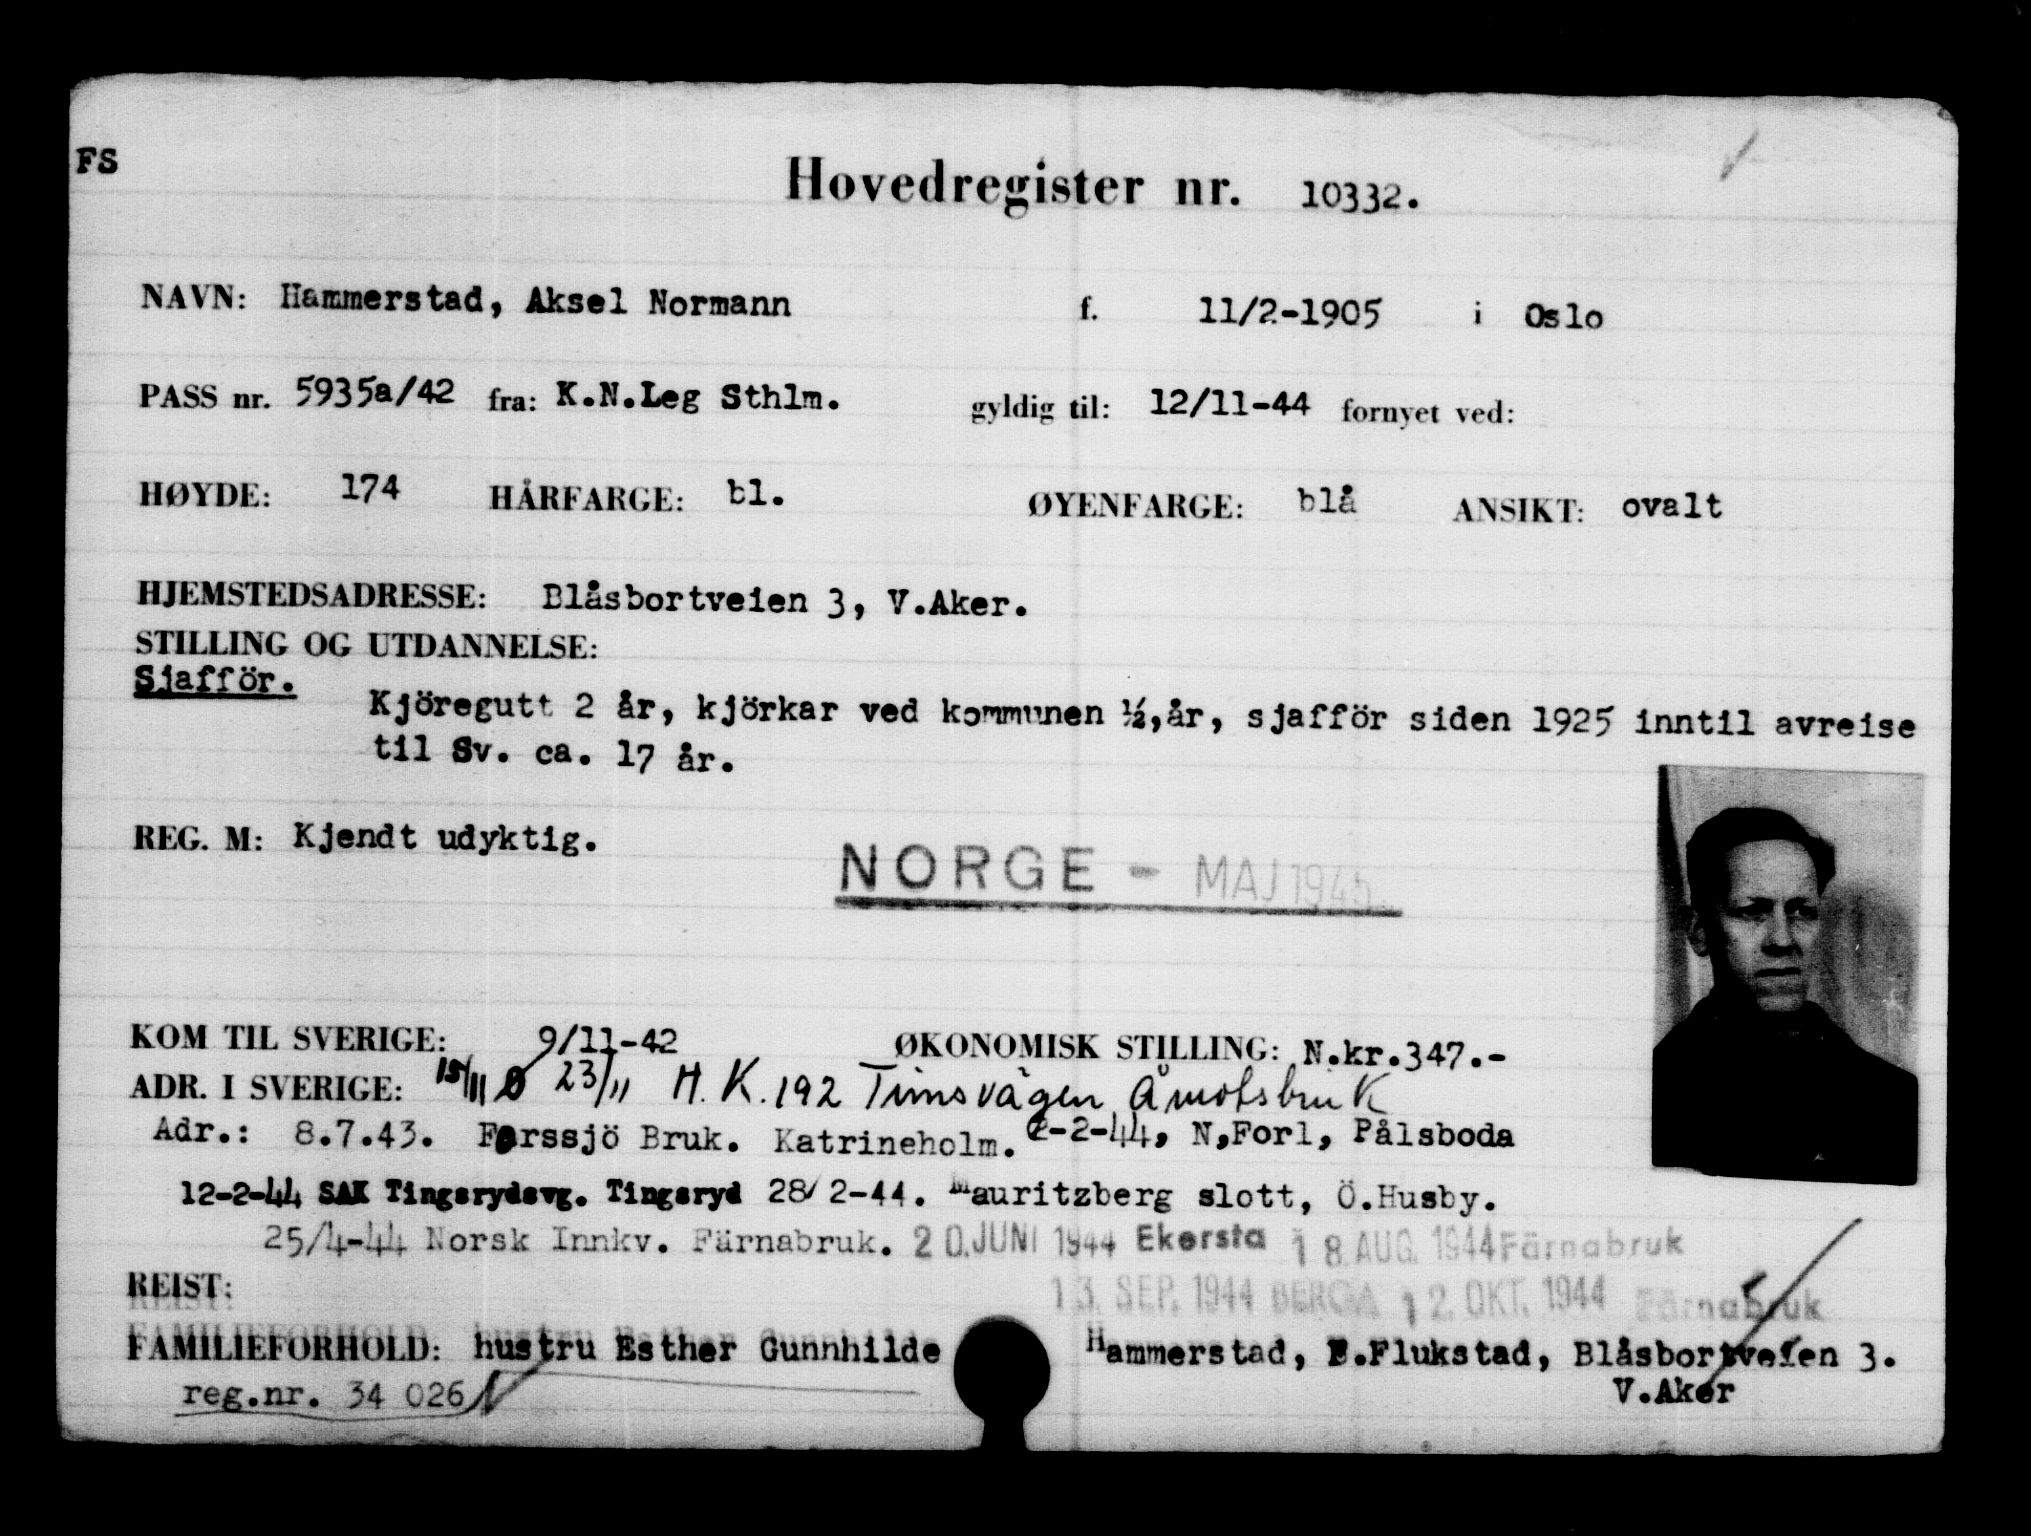 FS
Hovedregister nr. 10332.
NAVN: Hammerstad, Aksel Normann f. 11/2-1905 i Oslo
PASS nr. 5935a/42 fra: K.N.Leg Sthlm. gyldig til: 12/11-44 fornyet ved:
HØYDE: 174 HÅRFARGE: bl. ØYENFARGE: blå ANSIKT: ovalt
HJEMSTEDSADRESSE: Blåsbortveien 3, V.Aker.
STILLING OG UTDANNELSE:
Sjafför.
Kjöregutt 2 år, kjörkar ved kommunen ½,år, sjafför siden 1925 inntil avreise
til Sv. ca. 17 år.
REG. M: Kjendt udyktig.
NORGE - MAJ 1945
KOM TIL SVERIGE: 9/11-42 ØKONOMISK STILLING: N.kr.347.-
ADR. I SVERIGE: 15/11 Ø 23/11 H.K. 192 Timsvägen Åmotsbruk
Adr.: 8.7.43. Forssjö Bruk. Katrineholm. 2-2-44, N,Forl, Pålsboda
12-2-44 SAK Tingsrydsvg. Tingsryd 28/2-44. Mauritzberg slott, Ö.Husby.
25/4-44 Norsk Innkv. Färnabruk. 20.JUNI 1944 Ekersta 18.AUG.1944 Färnabruk
REIST: 13. SEP. 1944 BERGA 12. OKT. 1944 Färnabruk
FAMILIEFORHOLD: hustru Esther Gunnhilde Hammerstad, F.Flukstad, Blåsbortveien 3.
reg.nr. 34 026 V.Aker